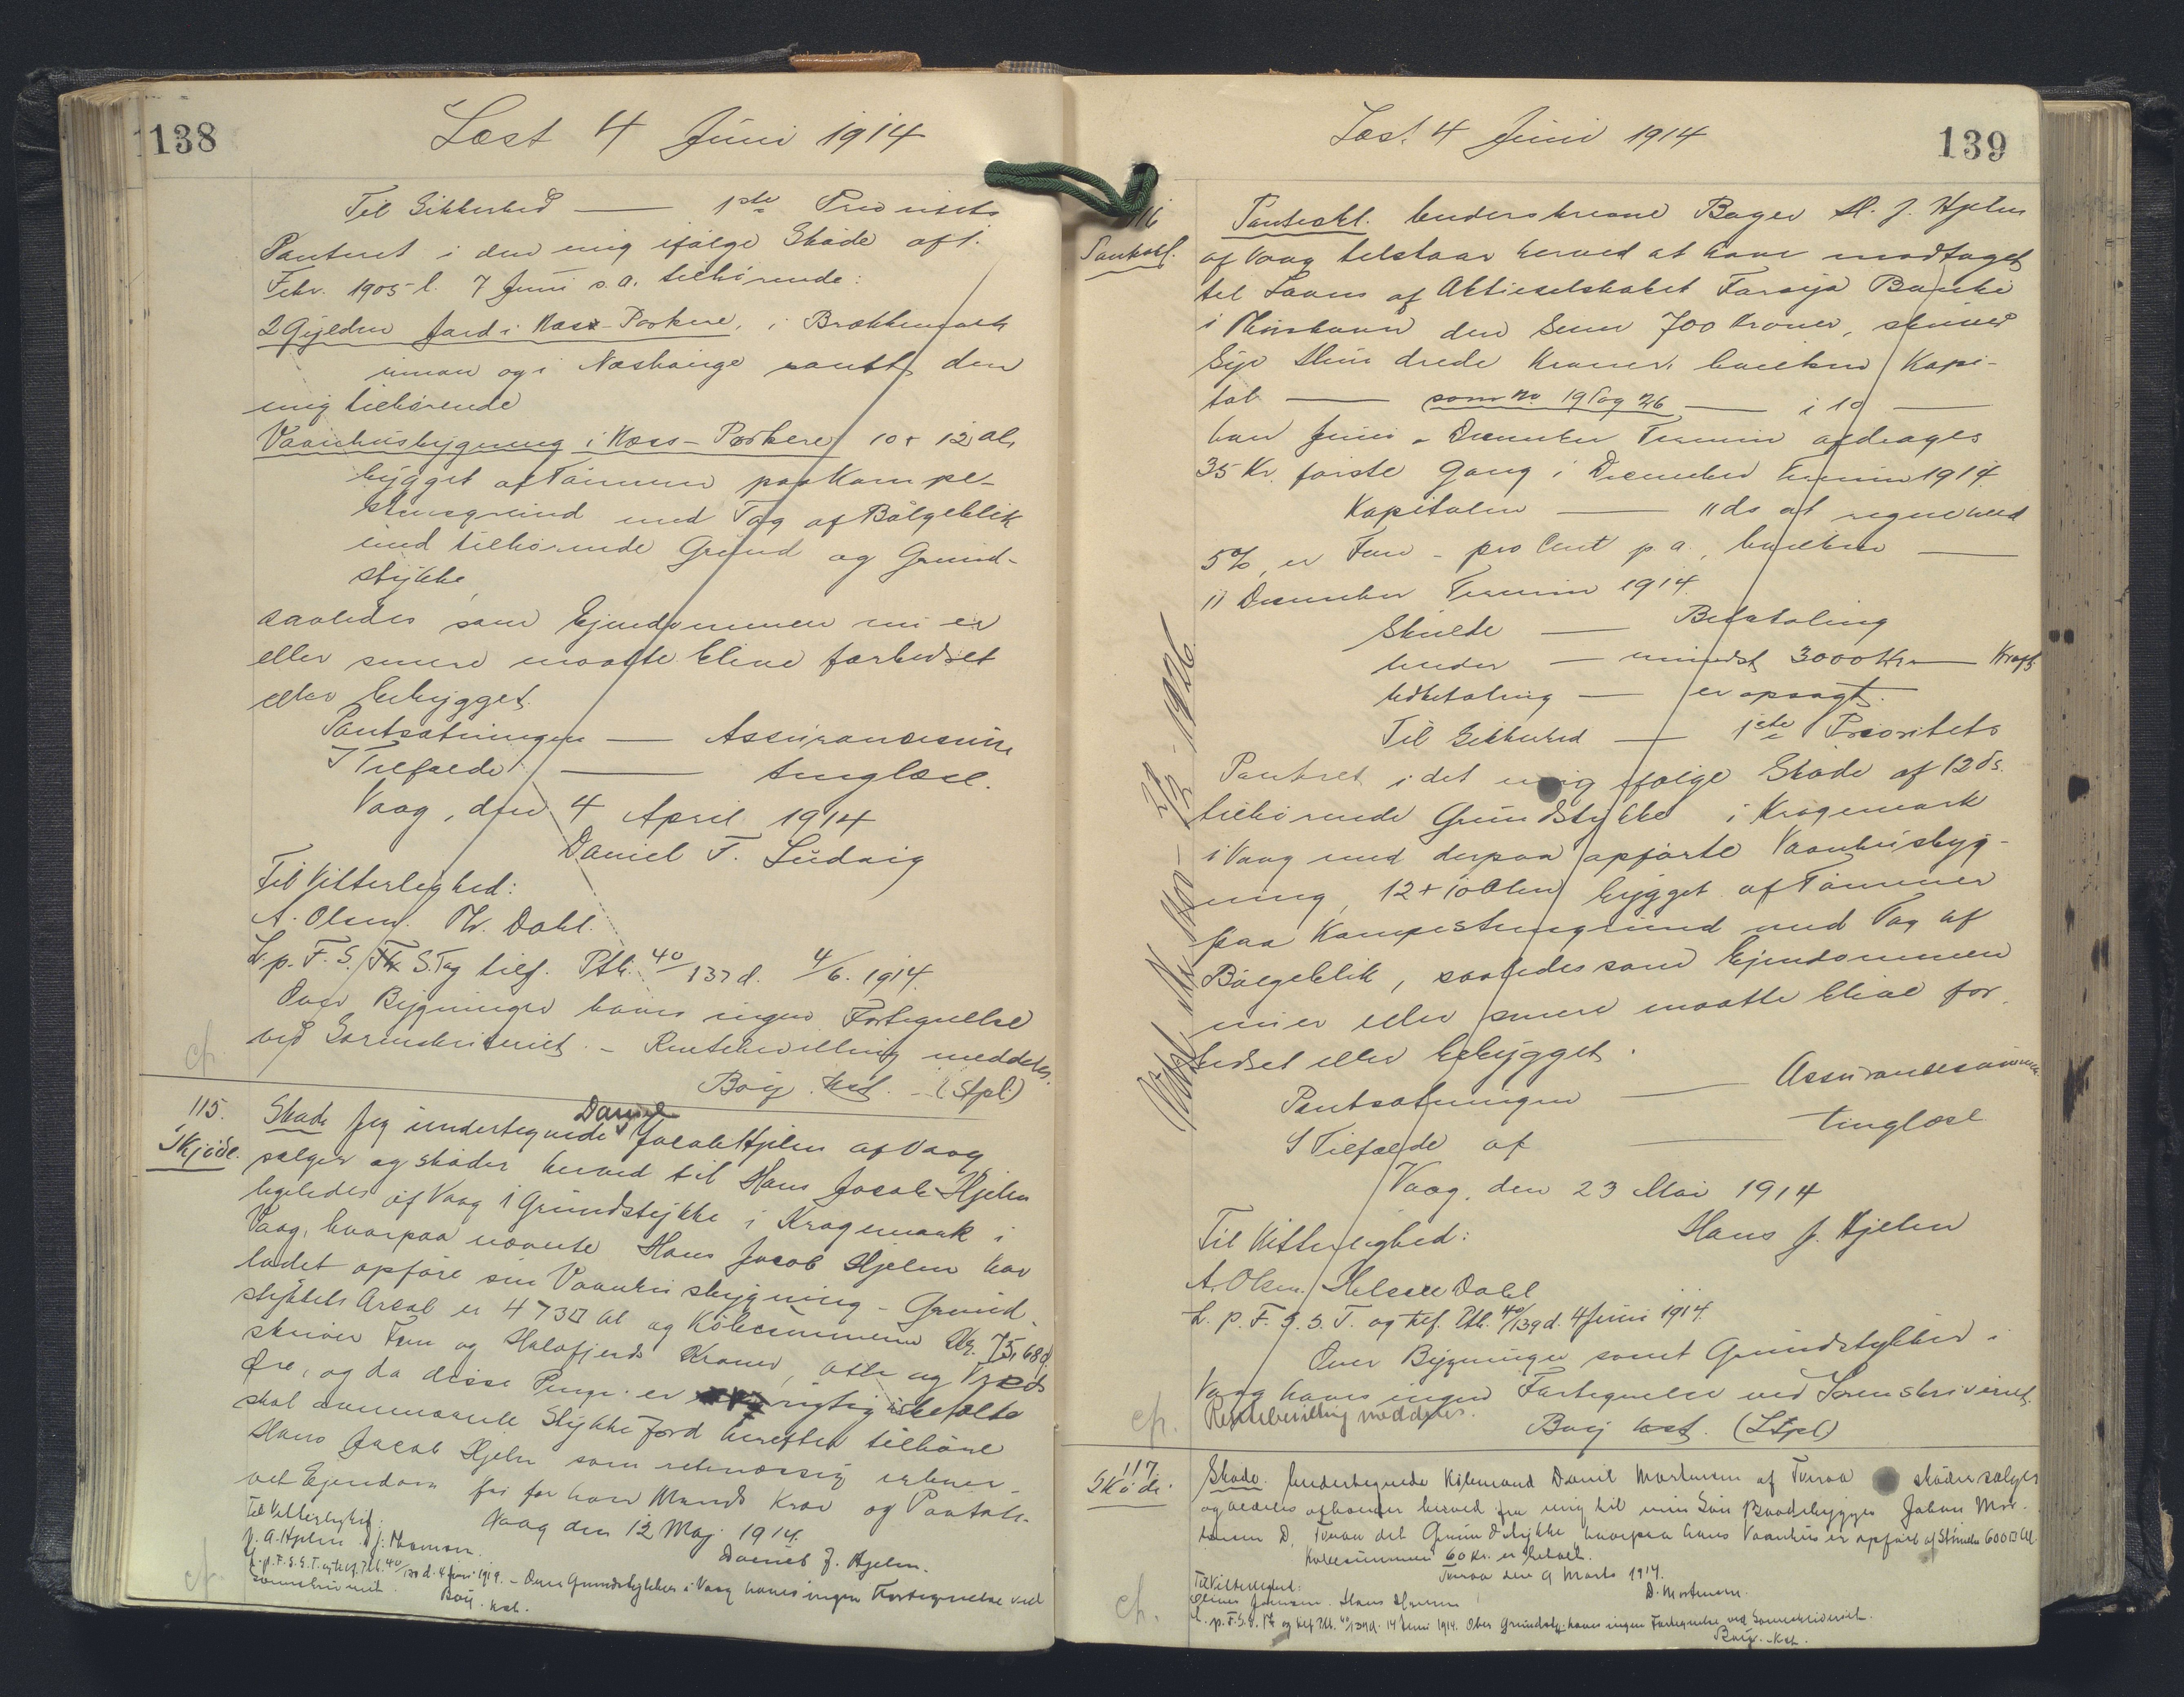 138
Læst 4 Juni 1914
Til Sikkerhed — 1ste Prioritets
Panteret i den mig ifølge Skøde af 1.
Febr. 1905 l. 7 Juni s.a. tilhørende:
2 Gylden Jord i Næs-Porkere, i
innan og i samt den
mig tilhørende
Vaanhusbygning i Næs-Porkere 10 + 12 Al.
bygget af Tømmer paa Kampe-
stensgrund med Tag af Bølgeblik
med tilhørende Grund og Grund-
stykke,
saaledes som Ejendommen nu er
eller senere maatte blive forbedret
eller bebygget.
Pantsætningen — Assurancesum
I Tilfælde — tinglæst.
Vaag, den 4 April 1914
Daniel F. Ludvig
Til Vitterlighed:
A. Olsen. Th. Dahl.
L. p. F. S. S. T. og tilf. Ptb. 40/137 d. 4/6. 1914.
Over Bygninger haves ingen Fortegnelse
ved Sorenskriveriet. - Rentebevilling meddeles.
Bærj. kst. - (Stpl.)
cf.
115.
Skjöde.
Skøde Jeg undertegnede Daniel Jacob Hjelm af Vaag
sælger og skøder herved til Hans Jacob Hjelm
ligeledes af Vaag 1 Grundstykke i Kragemark i
Vaag, hvorpaa nævnte Hans Jacob Hjelm har
ladet opføre sin Vaanhusbygning - Grund-
stykkets Areal er 473 □ Al og Købesummen Kr. 75,68 d.
skriver Fem og Halvfjerds Kroner, otte og Treds
Øre, og da disse Penge er rigtig betalte
skal ommeldte Stykke Jord herefter tilhøre
Hans Jacob Hjelm som retmæssig erhver-
vet Ejendom fri for hver Mands Krav og Paatale.
Vaag den 12 Maj 1914.
Daniel J. Hjelm.
Til Vitterlighed:
J. A. Hjelm. J. Thomsen.
L. p. F. S. S. T. og tilf. Ptb. 40/138 d. 4 Juni 1914. - Over Grundstykker i Vaag haves ingen Fortegnelse ved
Sorenskriveriet.
Bærj. kst.
cf.
139
Læst. 4 Juni 1914
116
Pantobl.
Panteobl. Underskrevne Bager H. J. Hjelm
af Vaag tilstaar herved at have modtaget
til Laans af Aktieselskabet Færøya Banki
i Thorshavn den Sum 700 Kroner, skriver
Syv Hundrede Kroner, hvilken Kapi-
tal — som No 19 og 26 — i 10 —
hver Juni og December Termin afdrages
35 Kr. første Gang i December Termin 1914
Kapitalen — 11ds at regne med
5%, er Fem - pro Cent p.a., hvilken —
11 December Termin 1914.
Skulde — Betaling
under — mindst 3000 Kr — Kraft
Udbetaling — er opsagt.
Til Sikkerhed — 1ste Prioritets
Panteret i det mig ifølge Skøde af 12 ds.
tilhørende Grundstykke i Kragemark
i Vaag med derpaa opførte Vaanhusbyg-
ning, 12 + 10 Alen bygget af Tømmer
paa Kampestensgrund med Tag af
Bølgeblik, saaledes som Ejendommen
nu er eller senere maatte blive for-
bedret eller bebygget.
Pantsætningen — Assurancesummen
I Tilfælde af — tinglæst
Vaag, den 23 Mai 1914
Til Vitterlighed:
Hans J. Hjelm
A. Olsen. Dahl
L. p. F. S. S. T. og tilf. Ptb. 40/139 d. 4 Juni 1914.
Over Bygninger samt Grundstykker i
Vaag haves ingen Fortegnelse ved Sorenskriveriet.
Rentebevilling meddeles.
Bærj kst. (Stpl)
cf.
117
Skøde.
Skøde. Undertegnede Købmand Daniel Mortensen af Tveraa skøder sælger
og aldeles afhænder herved fra mig til min Søn Baadebygger Johan Mor-
tensen D, Tveraa det Grundstykke hvorpaa hans Vaanhus er opført af Størrelse 600 □ Al
Købesummen 60 Kr. er betalt.
Tveraa den 9 Marts 1914.
Til Vitterlighed:
D. Mortensen.
Joensen. Hans
L. p. F. S. S. T. og tilf. Ptb. 40/139 d. 14 Juni 1914. Over Grundst. haves ingen Fortegnelse ved Sorenskriveriet.
Bærj. kst.
cf.